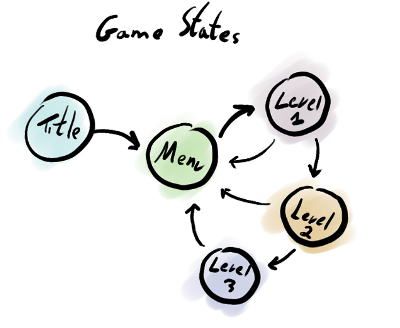 Game States
Title
Menu
Level
1
Level
2
Level
3